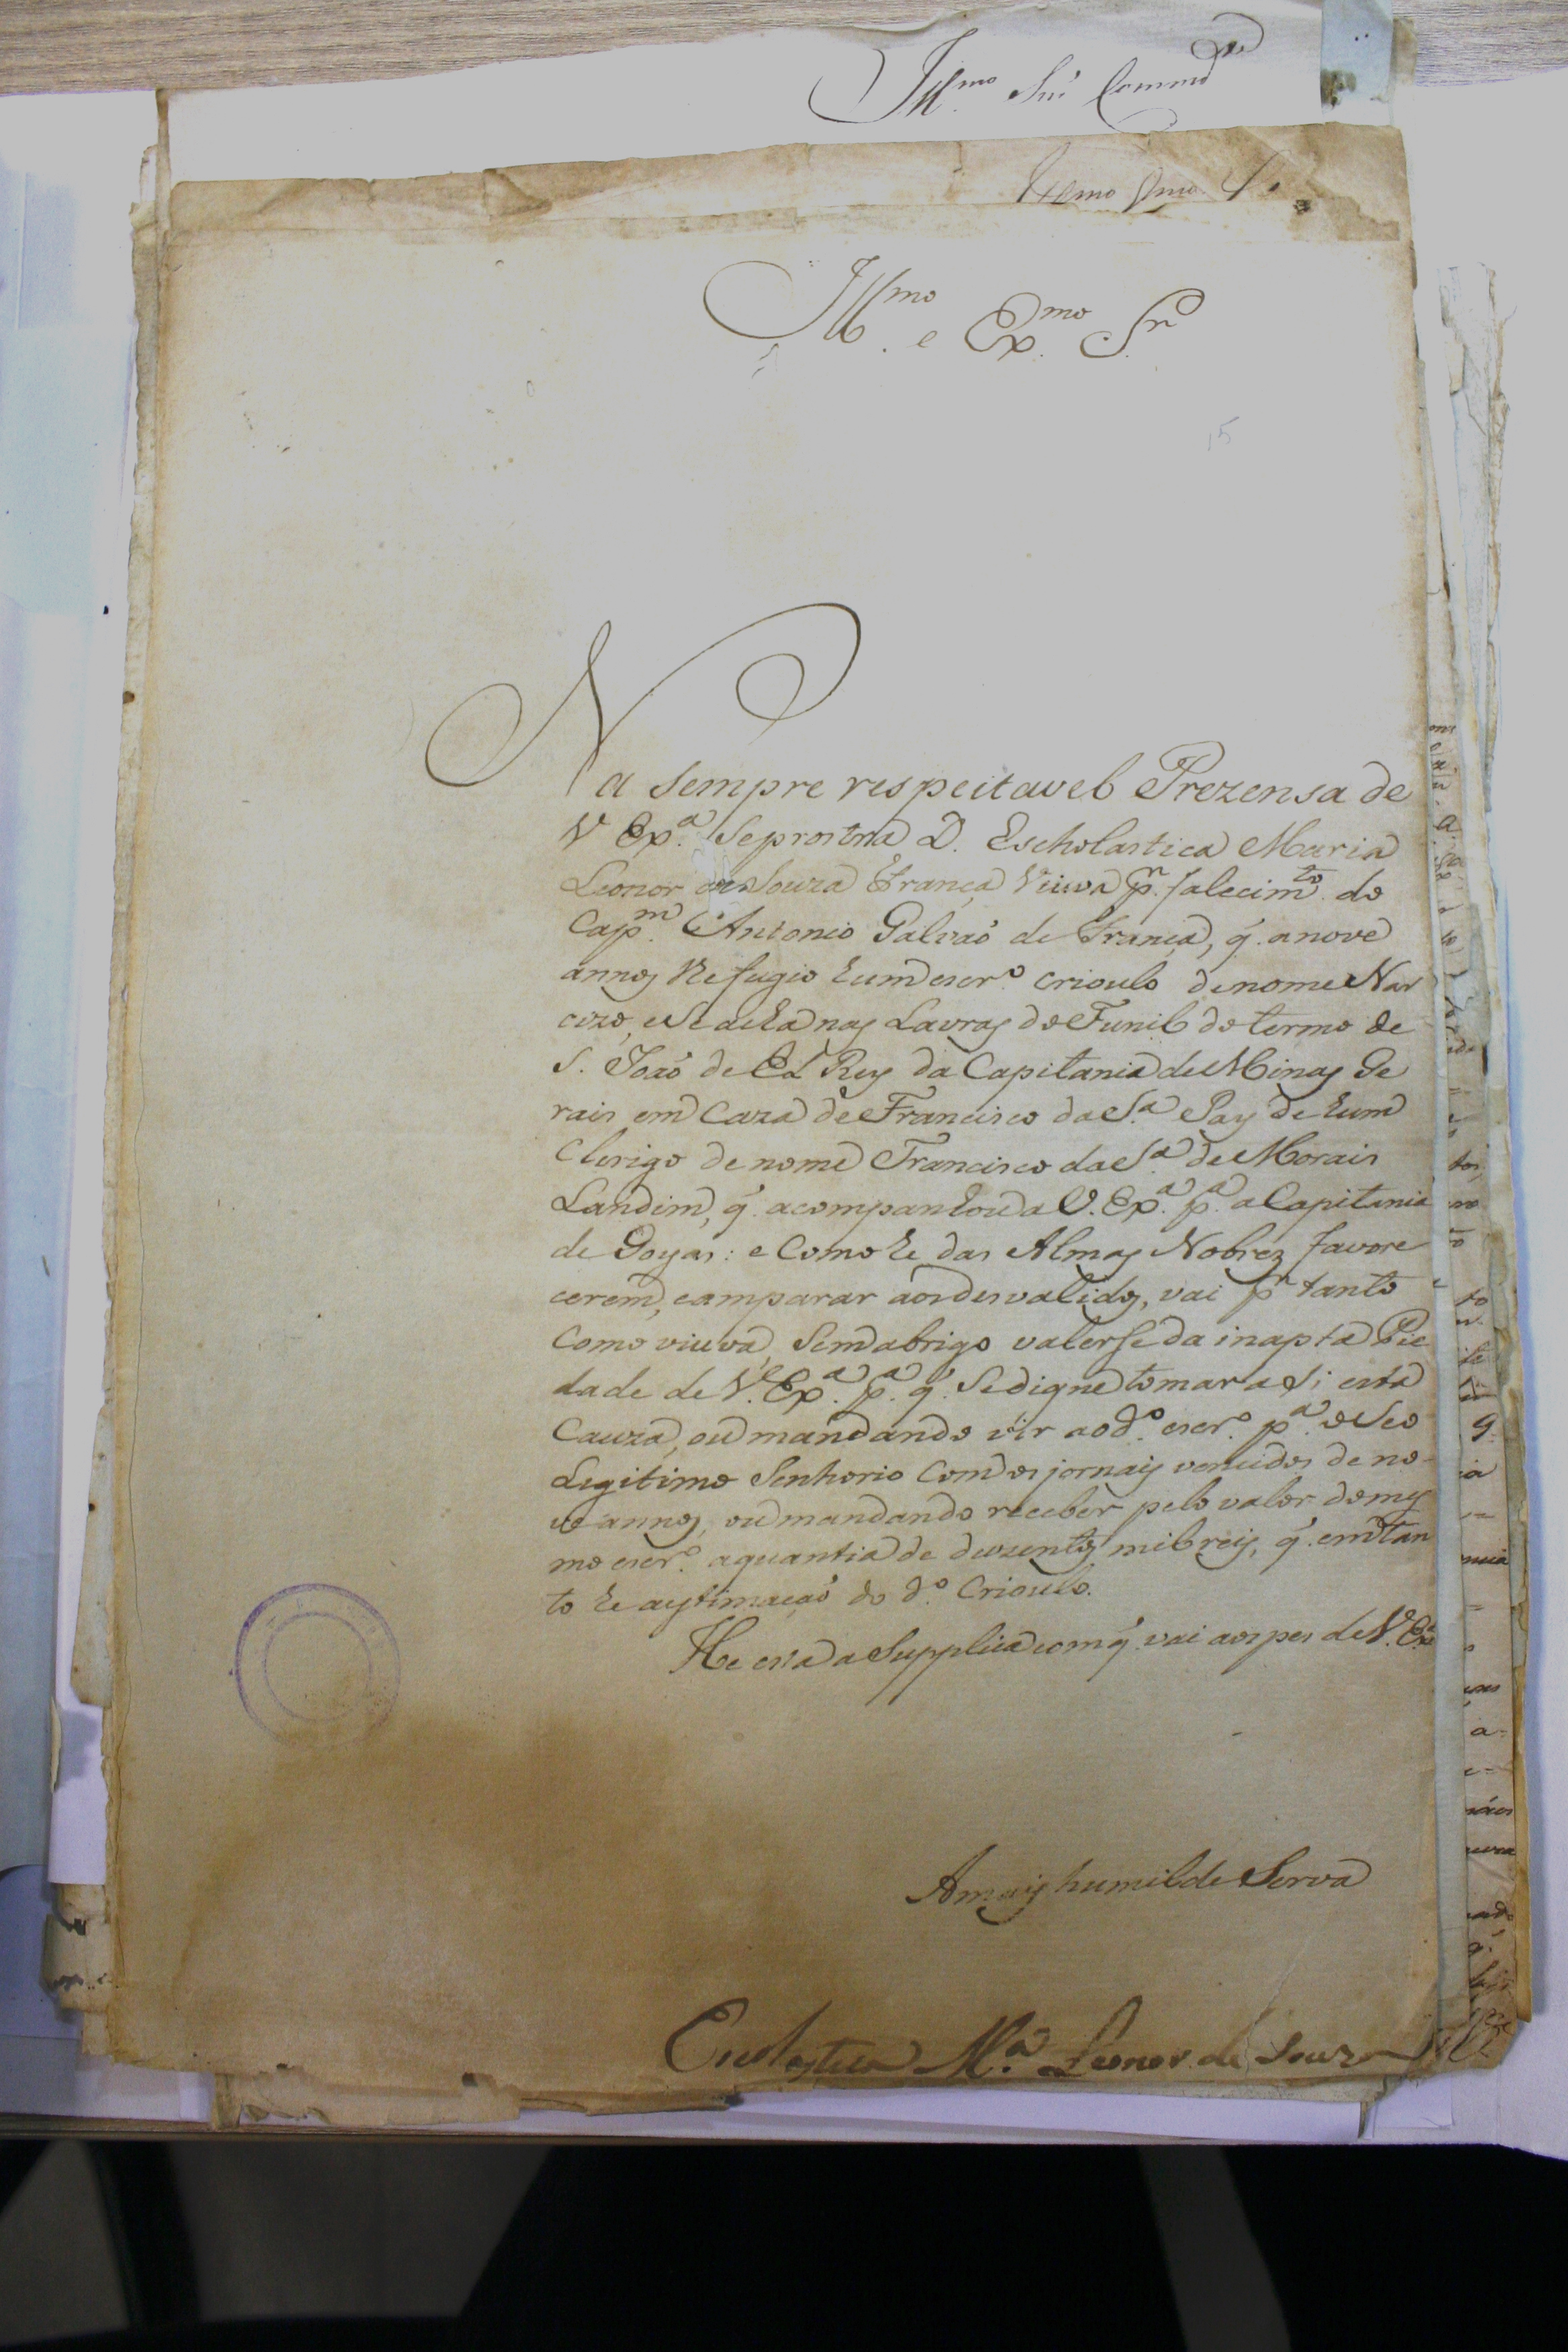 Ill.mo Snr Comm.de
Ill.mo e Ex.mo Snr
Na sempre respeitavel Prezensa de
V Ex.a Se prostra D. Escholastica Maria
Leonor de Souza França Viuva p.r falecim.to do
Cap.m Antonio Galvaó de França, q̃ a nove
annos Refugio hum escr.o crioulo de nome Nar
cizo, e Se acha nas Lavras do Funil do termo de
S. Joaó de El Rey da Capitania de Minas Ge
rais em Caza de Francisco da S.a Pay de hum
Clerigo de nome Francisco da S.a de Morais
Landim, q̃ acompanhou a V. Ex.a p.a a Capitania
de Goyas: e Como he das Almas Nobrez favore
cerem, e amparar aos desvalidos, vai p.r tanto
Como viuva, Sem abrigo valerse da inapta Pie
dade de V. Ex.a p.a q̃ Se digne tomar a Si esta
Cauza, ou mandando vir ao d.o escr.o p.a o Seo
Legitimo Senhorio Com os jornais vencidos de no-
ve annos, ou mandando receber pelo valor do mes
mo escr.o a quantia de duzentos mil reis, q̃ em tan
to he a estimaçaó do d.o Crioulo.
He esta a Supplica com q̃ vai aos pes de V. Ex.a
A mais humilde Serva
Escolastica M.a Leonor de Souza